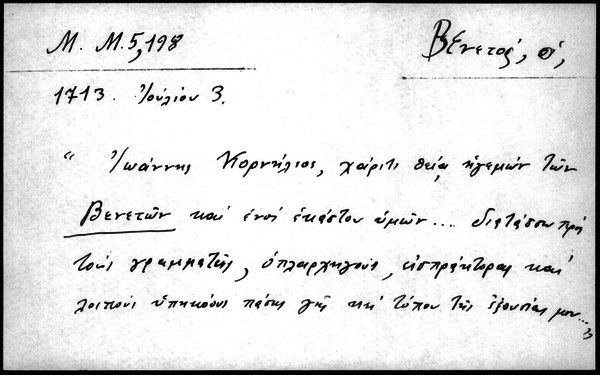 Μ. Μ. 5, 198
Βενετός, ὁ,
1713. Ἰούλιου 3.
“ Ἰωάννης Κορνήλιος, χάριτι θείᾳ ἡγεμών τῶν
Βενετῶν καὶ ἑνὸς ἑκάστου ὑμῶν... διατάσσω πρὸς
τοὺς γραμματεῖς, ὁπλαρχηγούς, εἰσπράκτορας καὶ
λοιποὺς ὑπηκόους πάσης γῆς καὶ τόπου τῆς ἐξουσίας μου...”